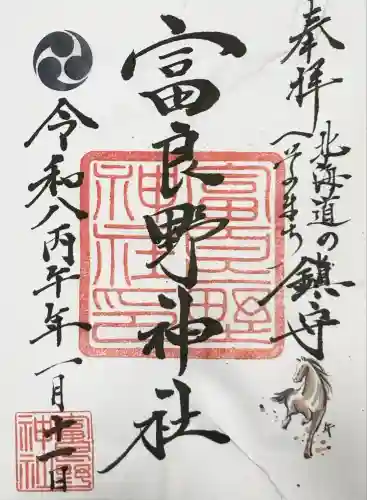 奉拝
北海道の
へそのまち
鎮守
富良野神社
令和八丙午年一月十一日
富良野
神社印
富良野
神社
午